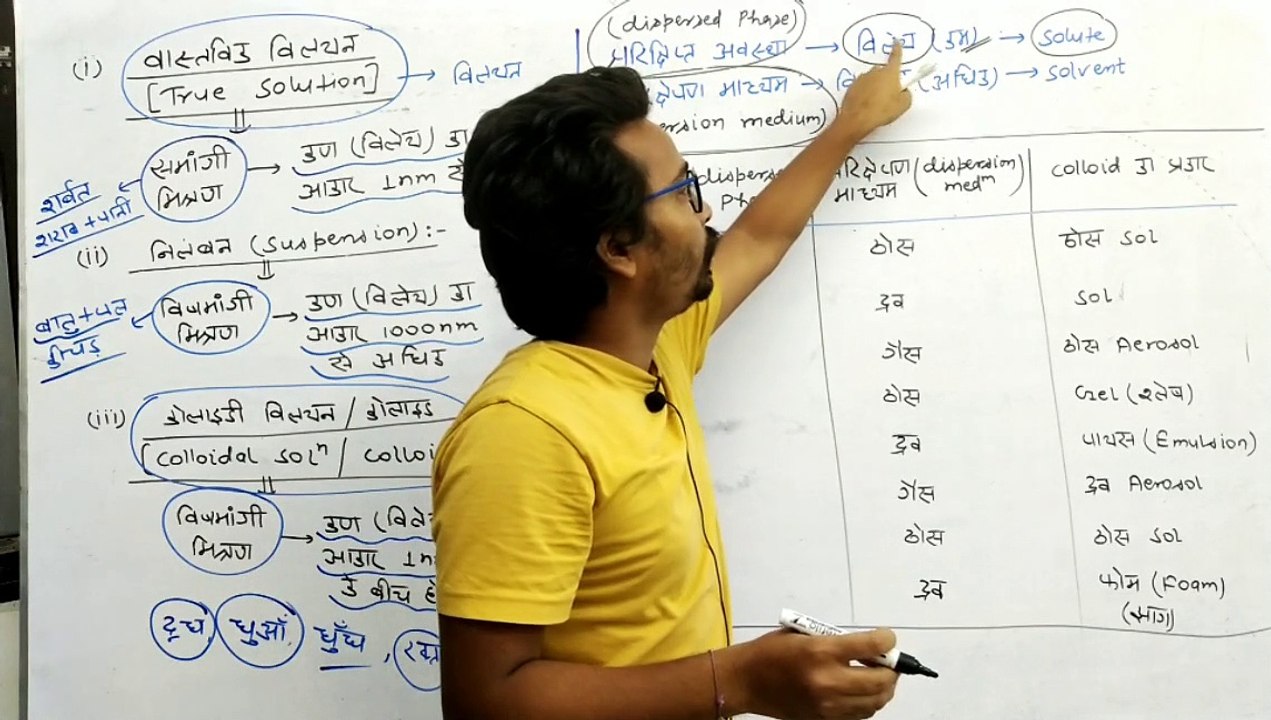 (i) वास्तविक विलयन
[True solution] → विलयन
समांगी मिश्रण → कण (विलेय) का
आकार 1nm से
शर्बत
शराब + पानी
(ii) निलंबन (suspension) :-
विषमांगी मिश्रण → कण (विलेय) का
आकार 1000nm
से अधिक
बालु + जल
कीचड़
(iii) कोलाइडी विलयन / कोलाइड
[colloidal solⁿ / colloi
विषमांगी मिश्रण → कण (विले
आकार 1n
के बीच हो
दूध, धुआँ, धुँध,
(dispersed Phase)
परिक्षिप्त अवस्था → विलेय (कम) → solute
क्षेपण माध्यम → (अधिक) → solvent
ersion medium)
dispers
Ph
परिक्षेपण माध्यम (dispersion medᵐ)
colloid का प्रकार
ठोस ठोस sol
द्रव sol
गैस ठोस Aerosol
ठोस Gel (श्लेष)
द्रव पायस (Emulsion)
गैस द्रव Aerosol
ठोस ठोस sol
द्रव फोम (Foam)
(झाग)